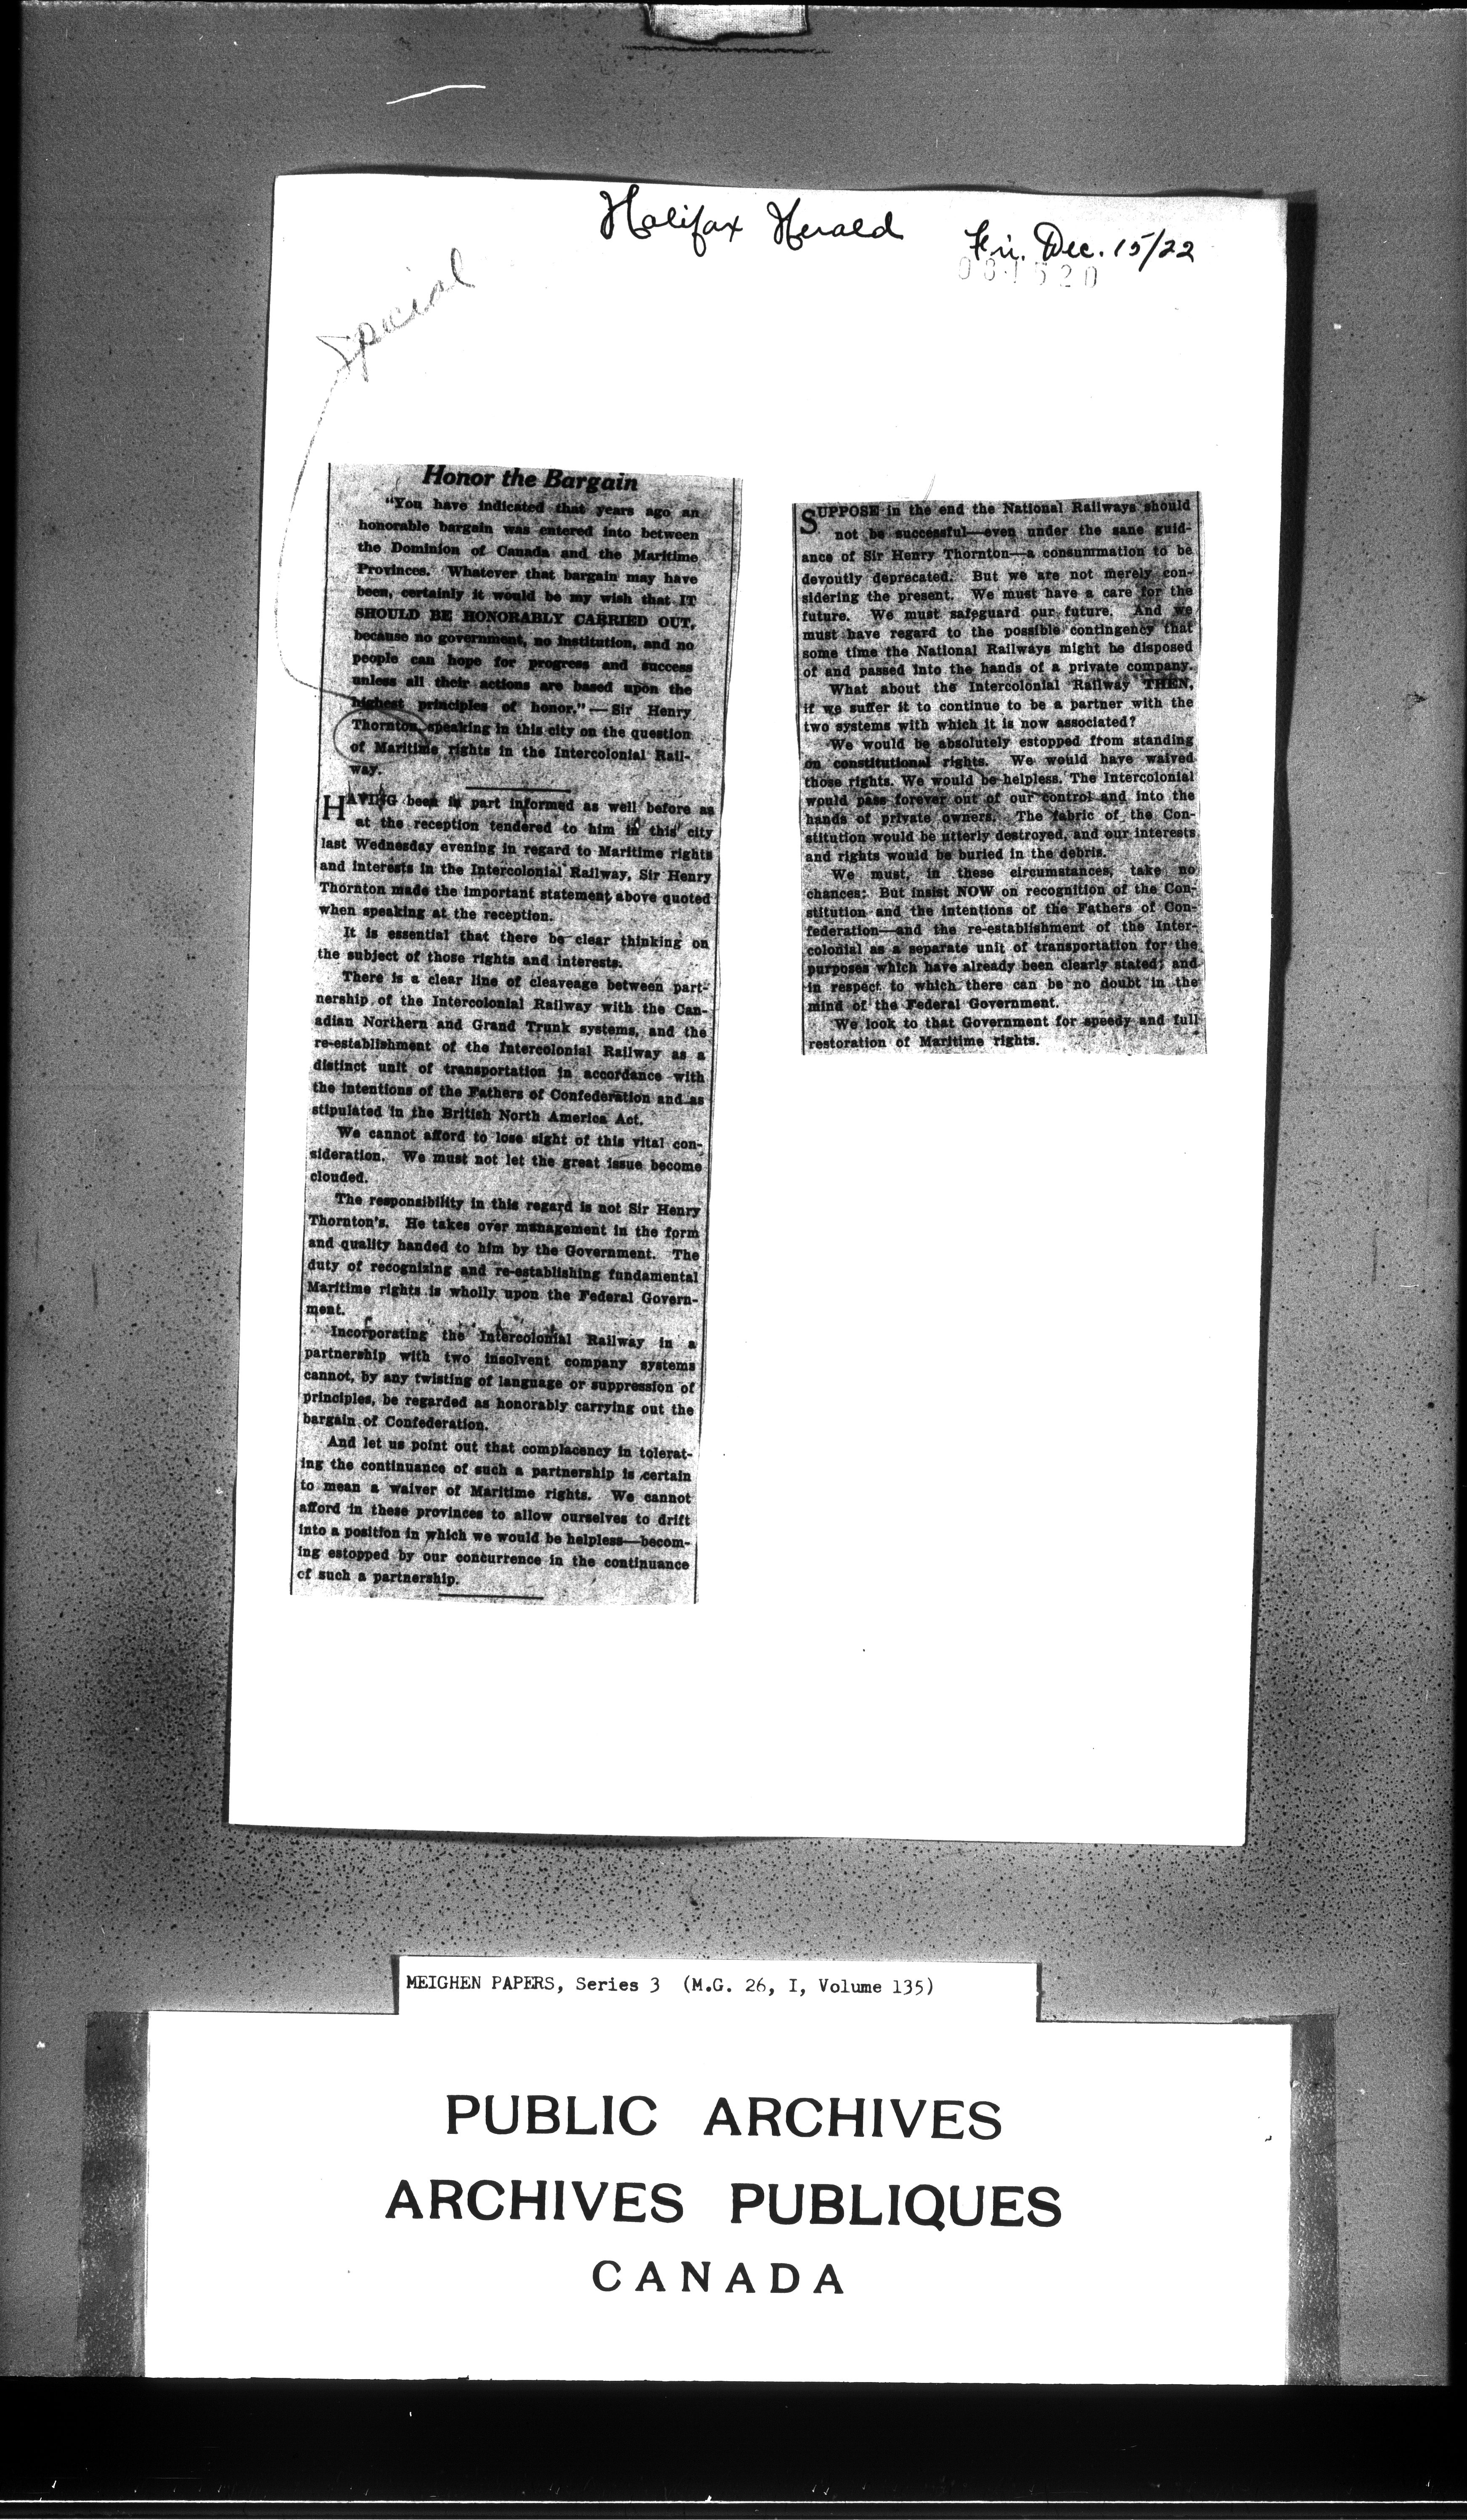 Halifax Herald Fri. Dec. 15/22
081520
Special
Honor the Bargain
"You have indicated that years ago an
honorable bargain was entered into between
the Dominion of Canada and the Maritime
Provinces. Whatever that bargain may have
been, certainly it would be my wish that IT
SHOULD BE HONORABLY CARRIED OUT,
because no government, no institution, and no
people can hope for progress and success
unless all their actions are based upon the
highest principles of honor."—Sir Henry
Thornton, speaking in this city on the question
of Maritime rights in the Intercolonial Rail-
way.
HAVING been in part informed as well before as
at the reception tendered to him in this city
last Wednesday evening in regard to Maritime rights
and interests in the Intercolonial Railway, Sir Henry
Thornton made the important statement above quoted
when speaking at the reception.
It is essential that there be clear thinking on
the subject of those rights and interests.
There is a clear line of cleaveage between part-
nership of the Intercolonial Railway with the Can-
adian Northern and Grand Trunk systems, and the
re-establishment of the Intercolonial Railway as a
distinct unit of transportation in accordance with
the intentions of the Fathers of Confederation and as
stipulated in the British North America Act.
We cannot afford to lose sight of this vital con-
sideration. We must not let the great issue become
clouded.
The responsibility in this regard is not Sir Henry
Thornton's. He takes over management in the form
and quality handed to him by the Government. The
duty of recognizing and re-establishing fundamental
Maritime rights is wholly upon the Federal Govern-
ment.
Incorporating the Intercolonial Railway in a
partnership with two insolvent company systems
cannot, by any twisting of language or suppression of
principles, be regarded as honorably carrying out the
bargain of Confederation.
And let us point out that complacency in tolerat-
ing the continuance of such a partnership is certain
to mean a waiver of Maritime rights. We cannot
afford in these provinces to allow ourselves to drift
into a position in which we would be helpless—becom-
ing estopped by our concurrence in the continuance
of such a partnership.
SUPPOSE in the end the National Railways should
not be successful—even under the sane guid-
ance of Sir Henry Thornton—a consummation to be
devoutly deprecated. But we are not merely con-
sidering the present. We must have a care for the
future. We must safeguard our future. And we
must have regard to the possible contingency that
some time the National Railways might be disposed
of and passed into the hands of a private company.
What about the Intercolonial Railway THEN,
if we suffer it to continue to be a partner with the
two systems with which it is now associated?
We would be absolutely estopped from standing
on constitutional rights. We would have waived
those rights. We would be helpless. The Intercolonial
would pass forever out of our control and into the
hands of private owners. The fabric of the Con-
stitution would be utterly destroyed, and our interests
and rights would be buried in the debris.
We must, in these circumstances, take no
chances: But insist NOW on recognition of the Con-
stitution and the intentions of the Fathers of Con-
federation—and the re-establishment of the Inter-
colonial as a separate unit of transportation for the
purposes which have already been clearly stated; and
in respect to which there can be no doubt in the
mind of the Federal Government.
We look to that Government for speedy and full
restoration of Maritime rights.
MEIGHEN PAPERS, Series 3 (M.G. 26, I, Volume 135)
PUBLIC ARCHIVES
ARCHIVES PUBLIQUES
CANADA